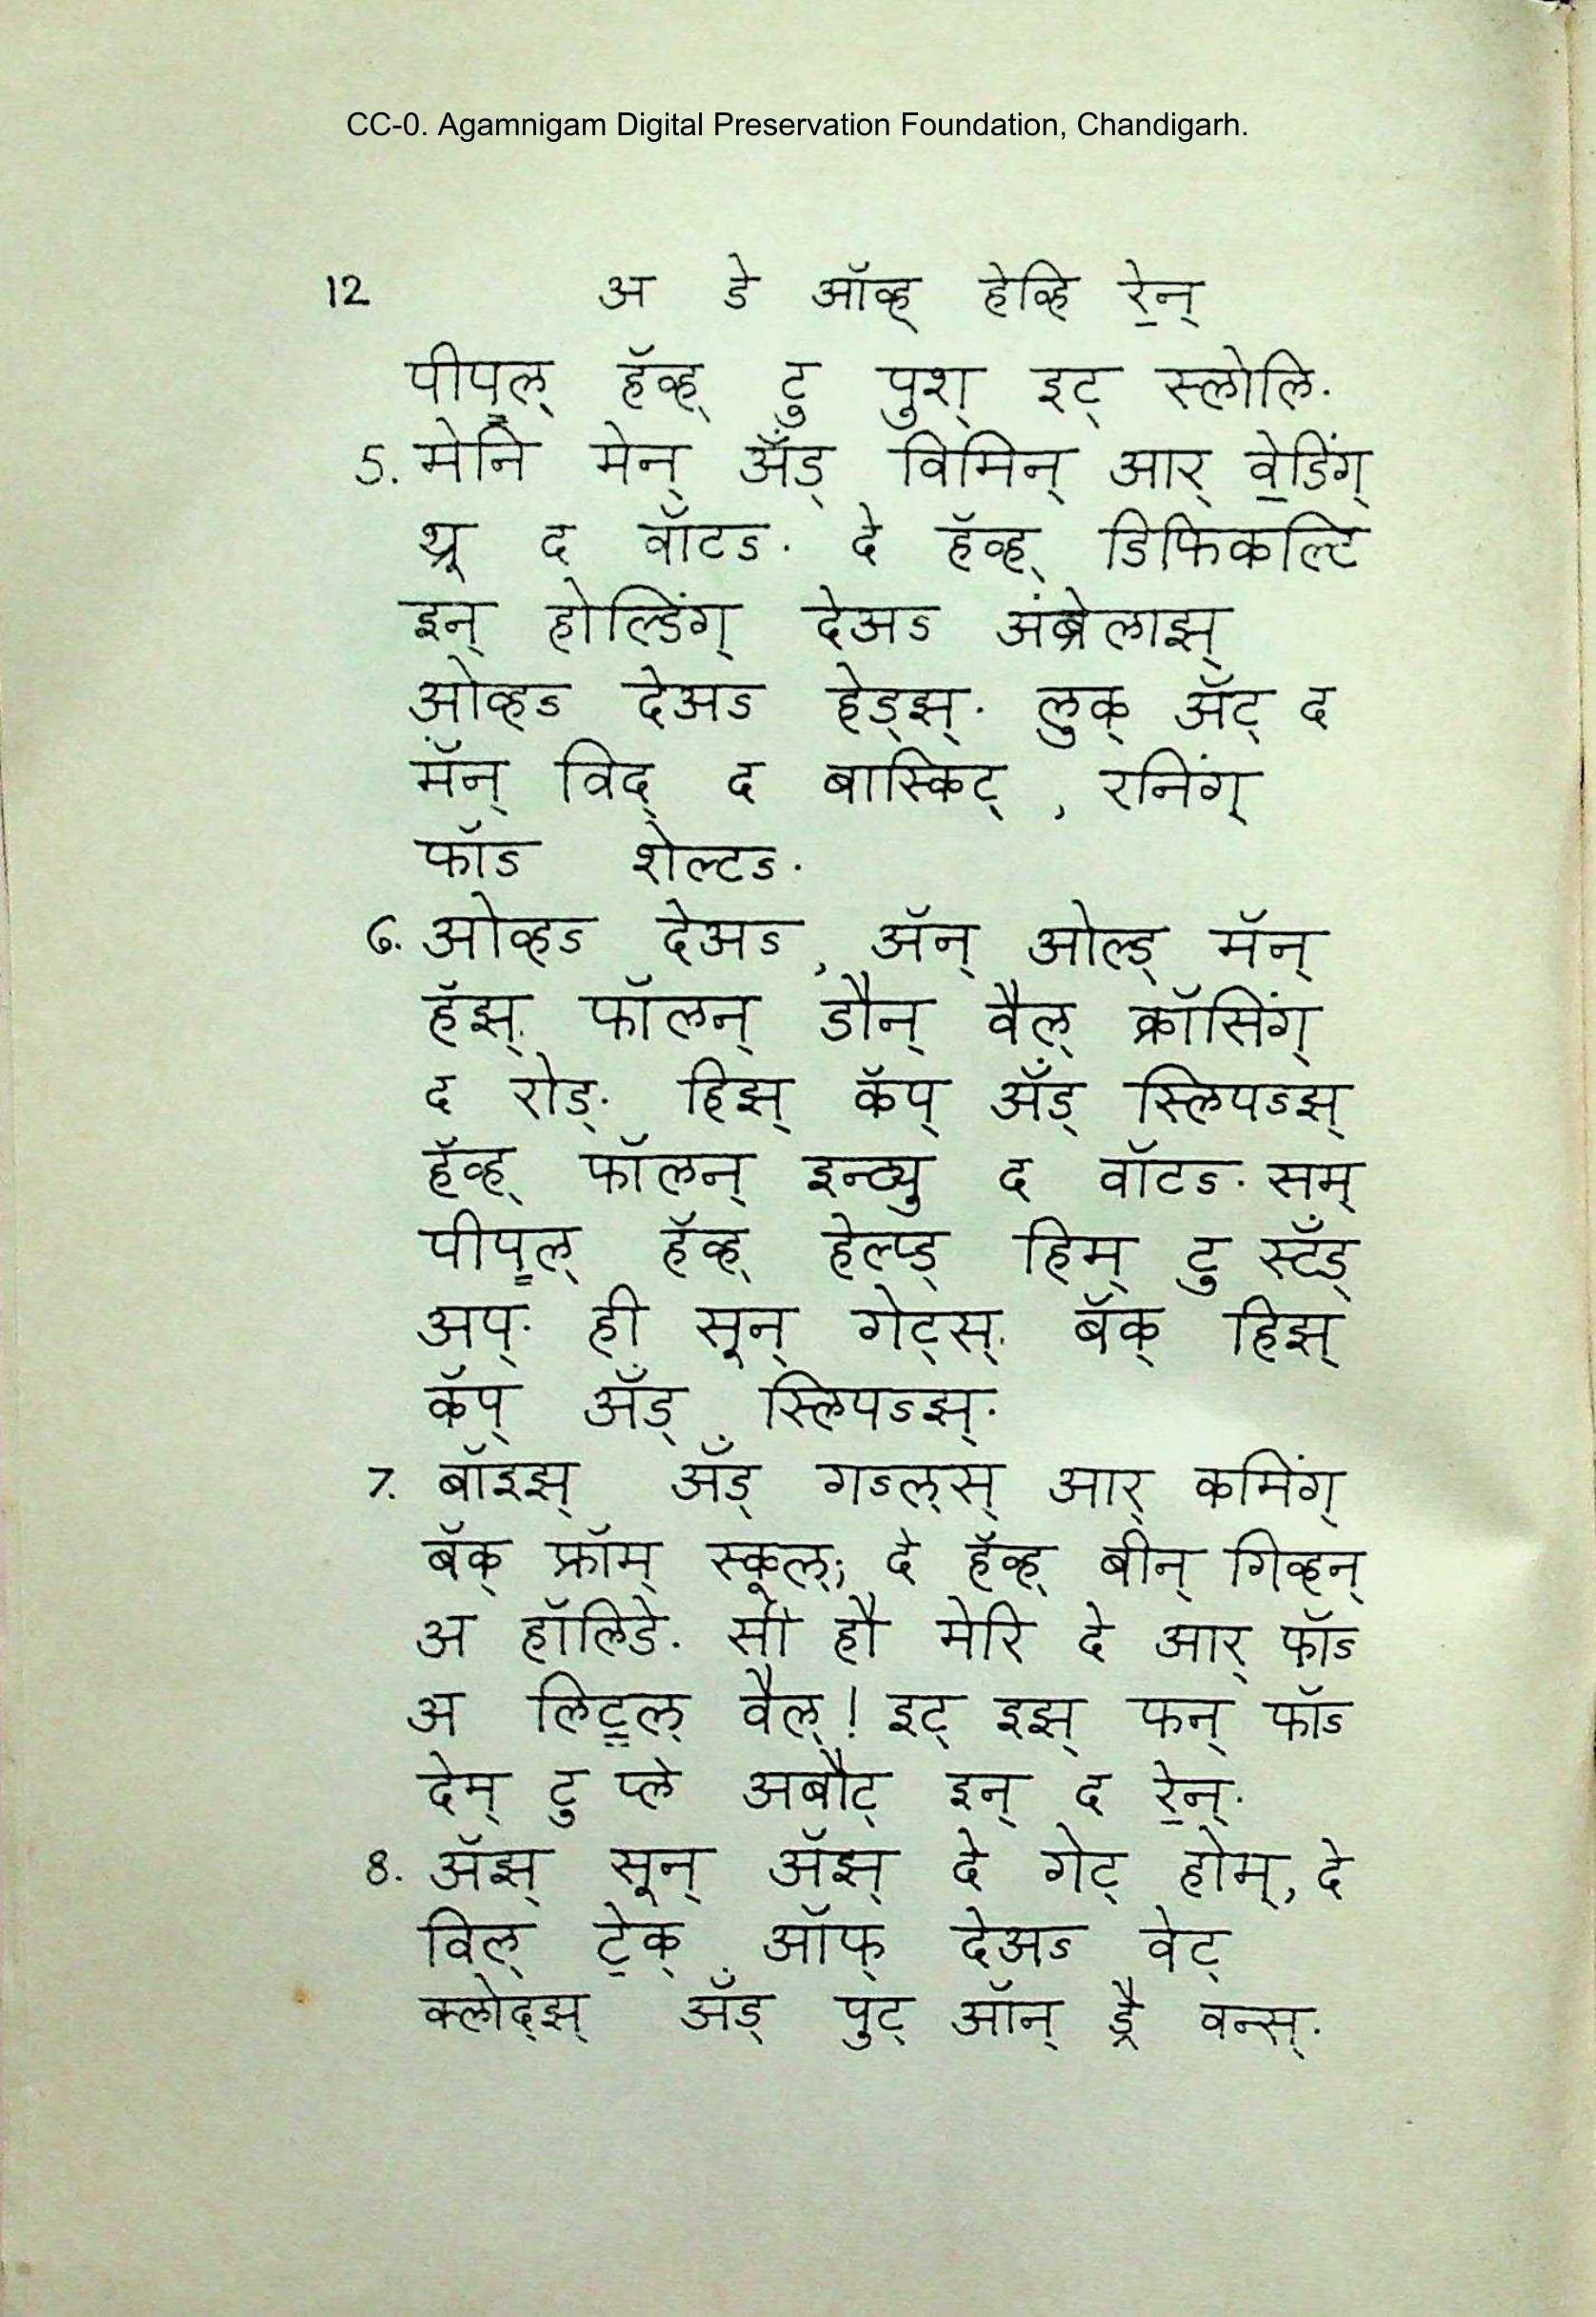 CC-0. Agamnigam Digital Preservation Foundation, Chandigarh.
12 अ डे ऑव्ह् हेव्हि रे॒न्
पीप॒ल् हॅव्ह् टु पुश् इट् स्लोलि.
5. मेनि मेन् अँड् विमिन् आर् वे॒डिंग्
थ्रू द वॉटऽ. दे हॅव्ह् डिफिकल्टि
इन् होल्डिंग् देअऽ अंब्रेलाझ्
ओव्हऽ देअऽ हेड्झ्. लुक् ॲट् द
मॅन् विद् द बास्किट् , रनिंग्
फॉऽ शेल्टऽ.
6. ओव्हऽ देअऽ, ॲन् ओल्ड् मॅन्
हॅझ् फॉलन् डौन् वैल् क्रॉसिंग्
द रोड्. हिझ् कॅप् अँड् स्लिपऽझ्
हॅव्ह् फॉलन् इन्ट्यु द वॉटऽ. सम्
पीप॒ल् हॅव्ह् हेल्प्ड् हिम् टु स्टँड्
अप्. ही सून् गेट्स् बॅक् हिझ्
कॅप् अँड् स्लिपऽझ्.
7. बॉइझ् अँड् गऽल्स् आर् कमिंग्
बॅक् फ्रॉम् स्कूल्; दे हॅव्ह् बीन् गिव्हन्
अ हॉलिडे. सी हौ मेरि दे आर् फॉऽ
अ लिट॒ल् वैल्! इट् इझ् फन् फॉऽ
देम् टु प्ले अबौट् इन् द रे॒न्.
8. ॲझ् सून् ॲझ् दे गेट् होम्, दे
विल् टे॒क् ऑफ् देअऽ वेट्
क्लोद्झ् अँड् पुट् ऑन् ड्रै वन्स्.